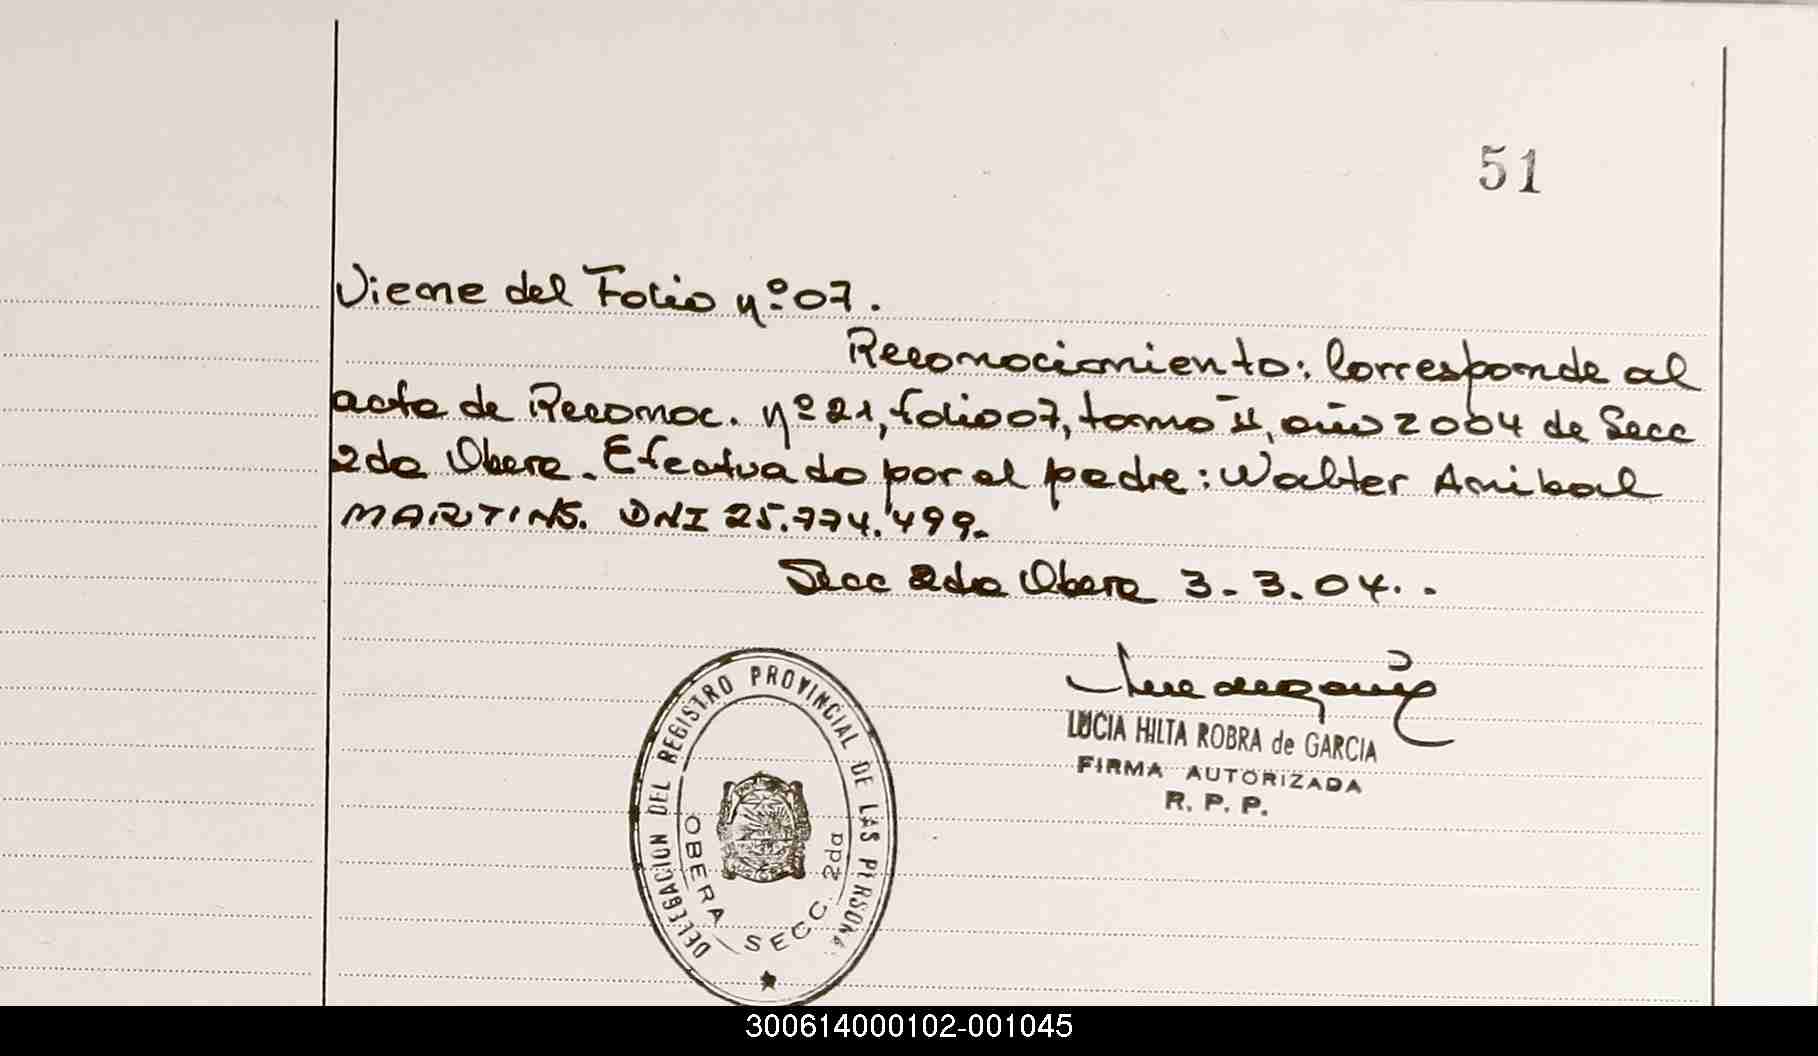 51
Viene del Folio nº 07.
Reconocimiento: Corresponde al
acta de Reconoc. nº 21, folio 07, tomo II, año 2004 de Secc
2da Obera. Efectuado por el padre: Walter Anibal
MARTINS. DNI 25.774.499.
Secc 2da Obera 3-3.04..
LUCIA HILTA ROBRA de GARCIA
FIRMA AUTORIZADA
R. P. P.
DELEGACION DEL REGISTRO PROVINCIAL DE LAS PERSON
OBERA SECC. 2da
300614000102-001045